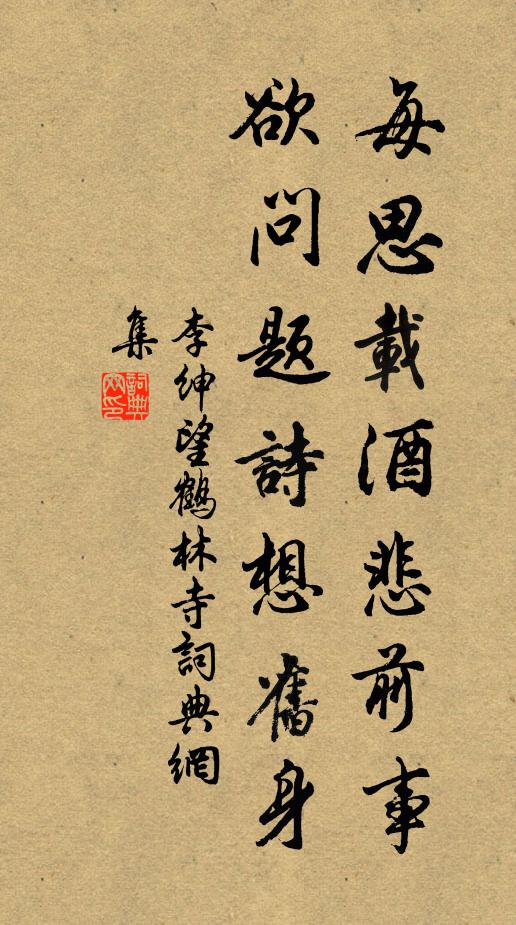 每思載酒悲前事
欲问题詩想舊身
李紳望鶴林寺詞典網
集
詞典網印